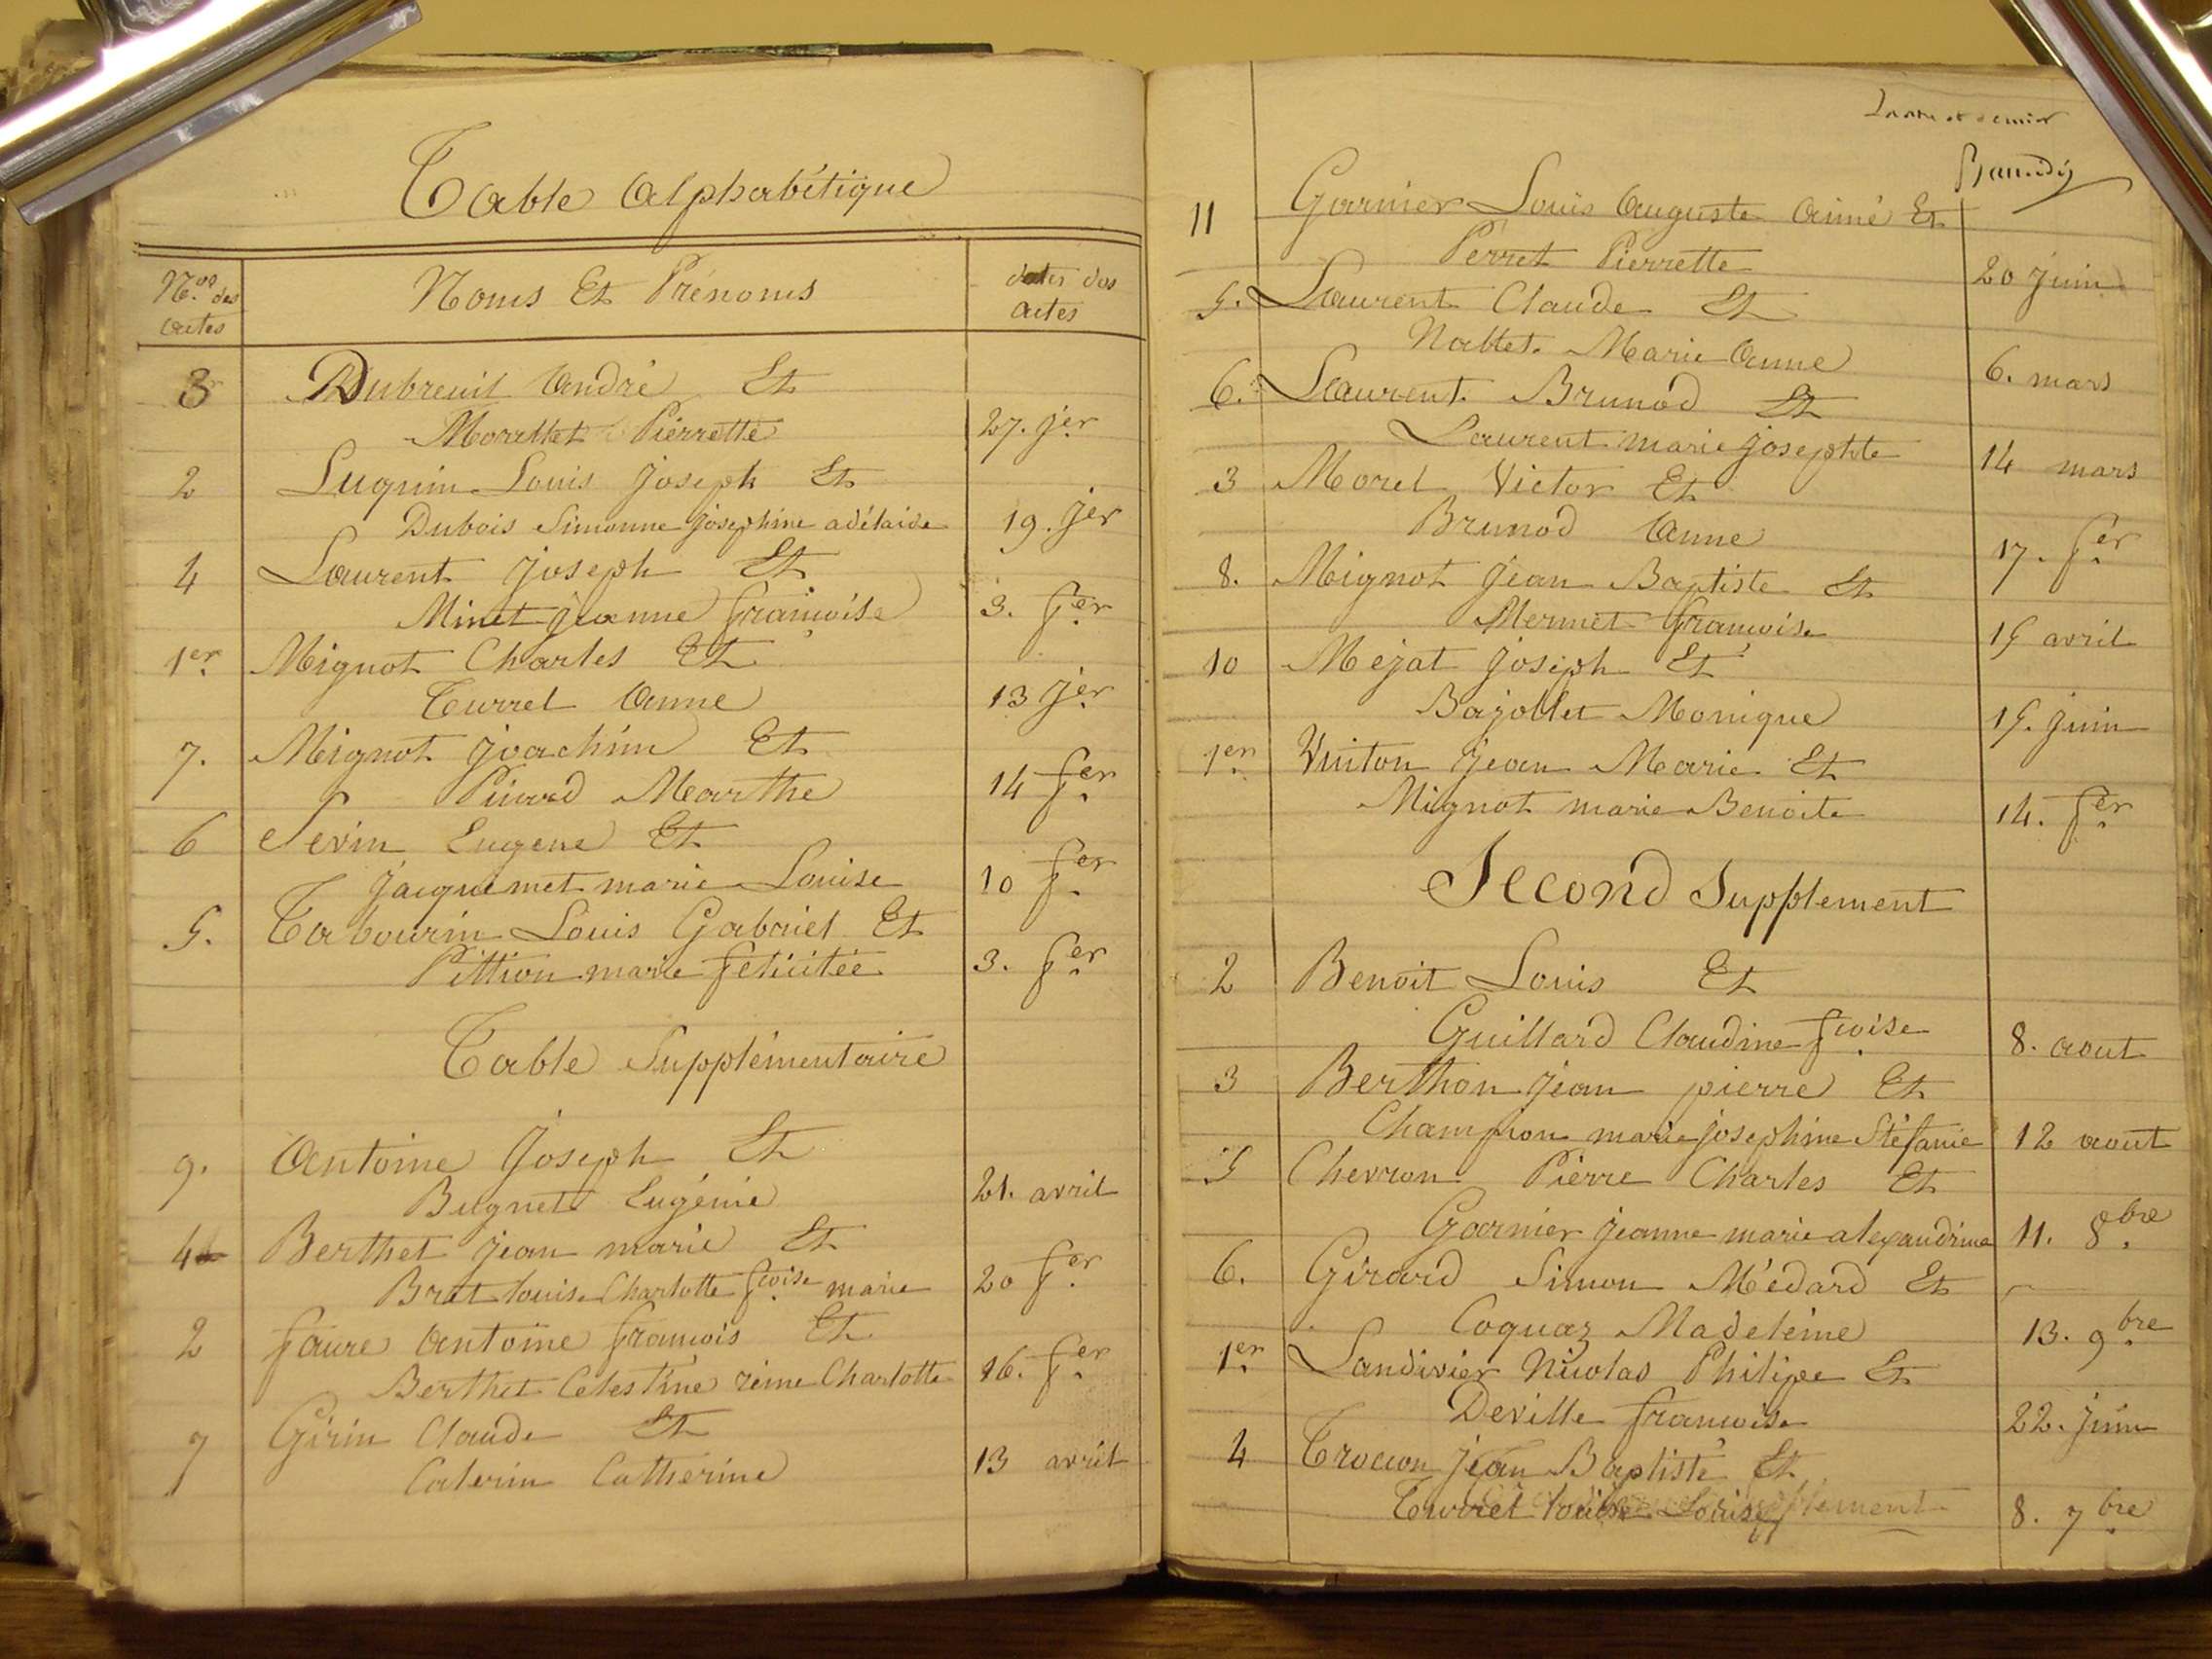 Table Alphabétique
N.os des actes
Noms Et Prénoms
dates des actes
3 Dubreuil André Et
Morillet Pierrette 27. jer
2 Luquin Louis Joseph Et
Dubois Simonne Josephine adélaide 19. jer
4 Laurent Joseph Et
Minet jeanne françoise 3. fer
1er Mignot Charles Et
Turrel Anne 13 jer
7. Mignot joachim Et
Pinard Marthe 14 fer
6 Sevin Eugene Et
Jacquemet marie Louise 10 fer
5. Tabourin Louis Gabriel Et
Pittion marie félicitée 3. fer
Table Supplémentaire
9. Antoine Joseph Et
Bugnet Eugénie 21. avril
4 Berthet jean marie Et
Brat louise Charlotte fcoise marie 20 fer
2 faure Antoine françois Et
Berthet Celestine reine Charlotte 16. fer
7 Girin Claude Et
Caterin Catherine 13 avril
et dernier
11 Garnier Louis Auguste Aimé Et
Perret Pierrette 20 juin
5. Laurent Claude Et
Nallet Marie Anne 6. mars
6. Laurent Brunod Et
Laurent marie josephte 14 mars
3 Morel Victor Et
Brunod Anne 17. fer
8. Mignot jean Baptiste Et
Mermet françoise 15 avril
10 Mejat Joseph Et
Bajollet Monique 15. juin
1er Vuiton Jean Marie Et
Mignot marie Benoite 14. fer
Second Supplement
2 Benoit Louis Et
Guillard Claudine fcoise 8. aout
3 Berthon jean pierre Et
Champion marie josephine Stéfanie 12 aout
5 Chevron Pierre Charles Et
Garnier jeanne marie alexandrine 11. 8bre
6. Girard Simon Médard Et
Coquaz Madeleine 13. 9bre
1er Landivier Nicolas Philipe Et
Deville françoise 22. juin
4 Troccon jean Baptiste Et
Turrel Louise 8. 7bre